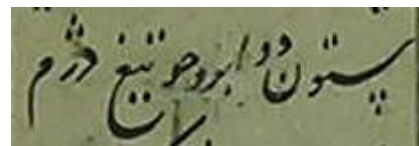 ستون دو ابرو چو تیغ دژم